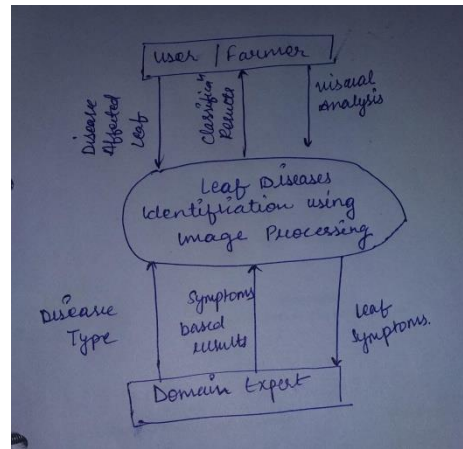 User / Farmer
Disease
Affected
Leaf
Classifica
Results
Visual
Analysis
Leaf Diseases
Identifiation using
Image Processing
Disease
Type
Symptoms
based
results
Leaf
Symptoms.
Domain Expert